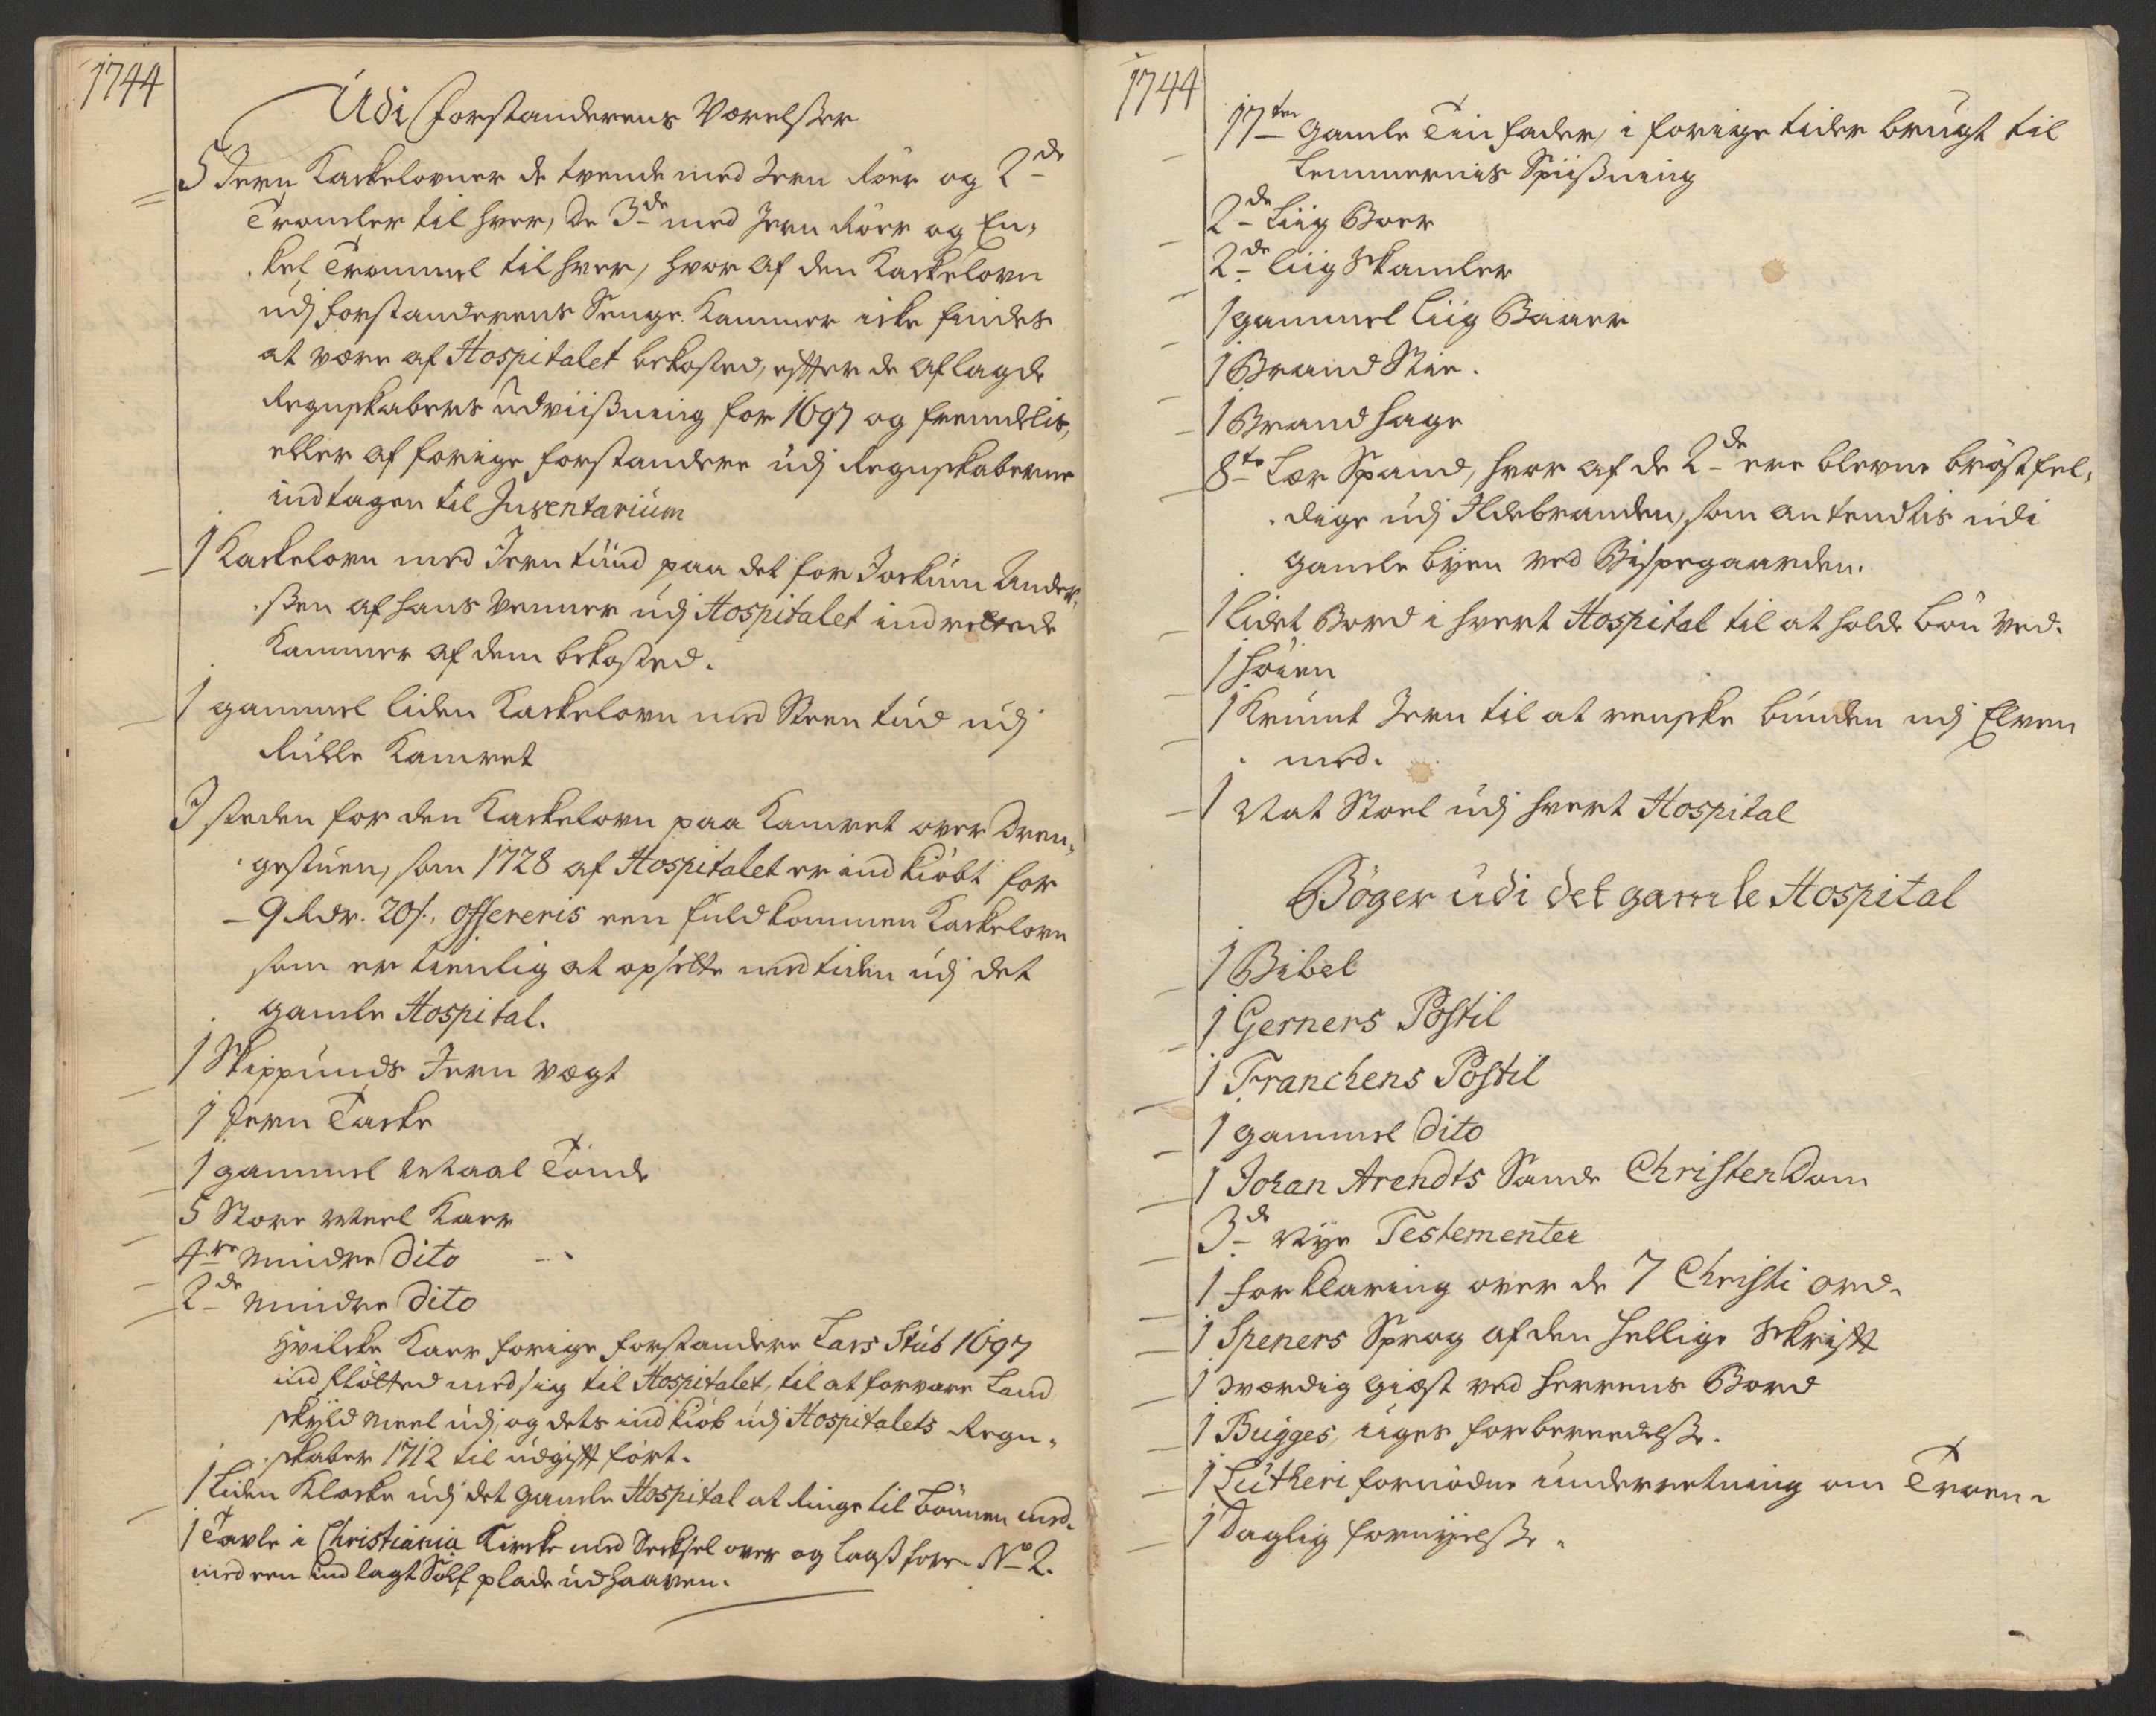 1744
Udi Forstanderens Værelsser
5 Jern Kackelovner de tvende med Jern Röer og 2de
Tromler til hver, De 3de med Jern Röer og En-
kel Trommel til hver, hvor af den Kackelovn
udj Forstanderens Senge Kammer icke findes
at være af Hospitalet bekosted, effter de aflagde
Regnskabers Udviißning for 1697 og fremdelis,
eller af forrige Forstandere udj Regnskaberne
indtagen til Inventarium
1 Kackelovn med Jern tuud paa det for Jockum Ander-
ßen af hans Venner udj Hospitalet indrettede
Kammer af dem bekosted.
1 gammel liden Kackelovn med Steen tud udj
Rulle Kamret
I steden for den Kackelovn paa Kamret over Dren-
gestuen, som 1728 af Hospitalet er indkiöbt for
9 Rdr. 20/:, offereris een fuldkommen Kackelovn
som er tienlig at opsette med tiden udj det
gamle Hospital.
1 Skippunds Jern vægt
1 Jern Tacke
1 gammel Maal Tönde
5 Store Meel Karr
4re mindre Dito
2de mindre Dito
Hvilcke Karr forige Forstandere Lars Stub 1697
indflötted med sig til Hospitalet, til at forvare Land
skyld Meel udj, og dets indkiöb udj Hospitalets Regn-
skaber 1712 til udgifft fört.
1 Liden Klocke udj det Gamle Hospital at Ringe til Bönnen med.
1 Tavle i Christiania Kircke med Decksel over og Laaß fore No 2.
med een indlagt Sölf plade udhaaven.
1744
17ten Gamle Tinfader, i forige tider brugt til
Lemmernis Spiißning
2de Liig Boer
2de liig Skamler
1 gammel Liig Baare
1 Brand Stie.
1 Brand hage
8te Lær Spand, hvor af de 2de ere blevne bröstfel-
dige udj Ildebranden, som antendtis udi
gamle byen ved Bispegaarden.
1 lidet Bord i hvert Hospital til at holde Bön ved.
1 Höien
1 Krumt Jern til at renske bunden udj Elven
med.
1 Nat Stoel udj hvert Hospital
Böger udi det gamle Hospital
1 Bibel
1 Gerners Postil
1 Franchens Postil
1 gammel Dito
1 Johan Arendts Sande Christendom
3de Nye Testementer
1 Forklaring over de 7 Christi ord.
1 Speners Sprog af den hellige Skrifft
1 værdig Giæst ved Herrens Bord
1 Bugges, uges forberedelße.
1 Lutheri fornödne underretning om Troen.
1 Daglig fornyelße.